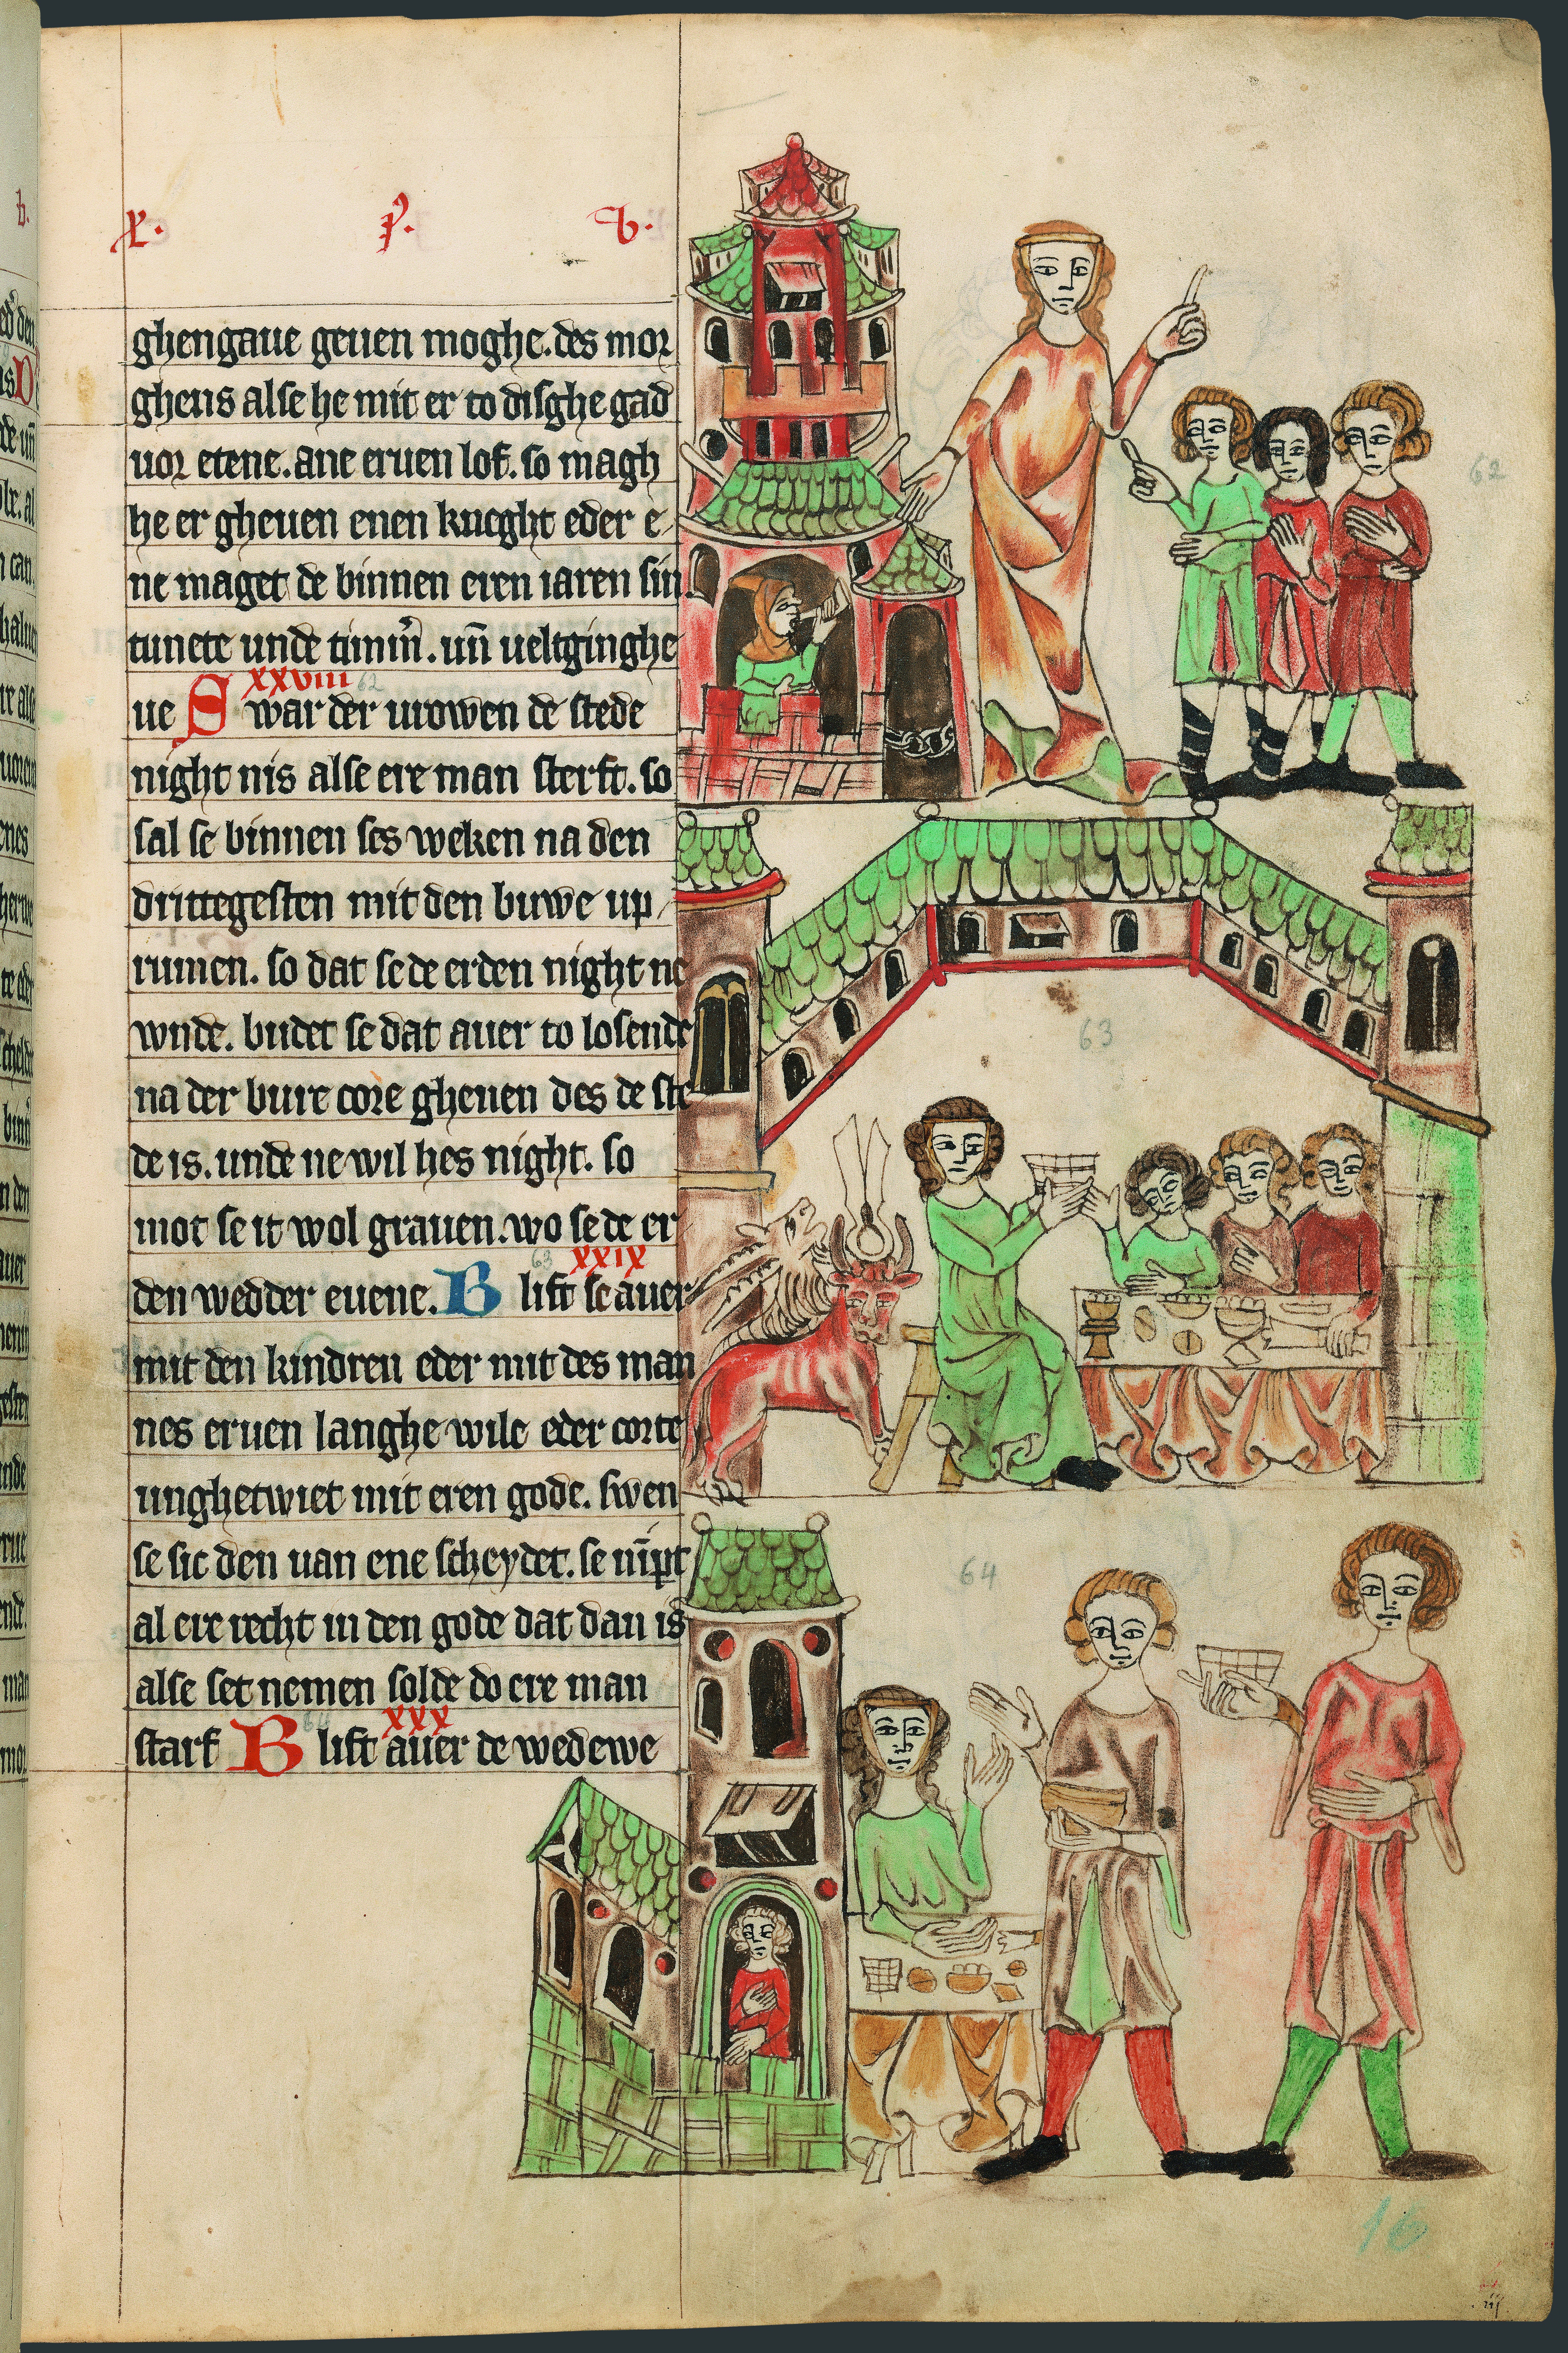 x. p. b.
ghengaue geuen moghe. des mor
ghens alse he mit er to disghe gad
uor etene. ane eruen lof. so magh
he er gheuen enen kneght eder e
ne maget de binnen eren iaren sin.
tunete unde timm̄. un̄ ueltginghe
XXVIII 62
ue Swar der urowen de stede
night nis alse ere man sterft. so
sal se binnen ses weken na den
drittegesten mit den buwe up
rumen. so dat se de erden night ne
wnde. budet se dat auer to losende
na der bure core gheuen des de ste
de is. unde ne wil hes night. so
mot se it wol grauen. wo se de er
63 XXIX
den wedder euene. Blift se auer
mit den kindren eder mit des man
nes eruen langhe wile eder corte
unghetwiet mit eren gode. swen
se sic den uan ene scheydet. se nīpt
al ere recht in den gode dat dan is
alse set nemen solde do ere man
64 XXX
starf Blift auer de wedewe
62
63
64
16